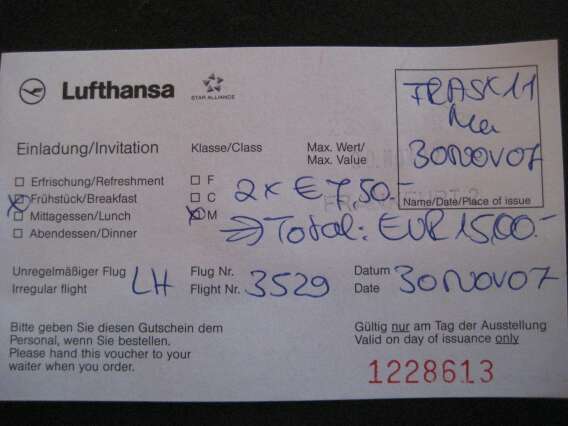 Lufthansa
STAR ALLIANCE
FRASK11
30NOV07
Name/Date/Place of issue
Einladung/Invitation
Klasse/Class
Max. Wert/
Max. Value
Erfrischung/Refreshment
F
Frühstück/Breakfast
C
2x € 7,50.-
Mittagessen/Lunch
M
Total: EUR 15,00.-
Abendessen/Dinner
Unregelmäßiger Flug
Irregular flight
LH
Flug Nr.
Flight Nr.
3529
Datum
Date
30NOV07
Bitte geben Sie diesen Gutschein dem
Personal, wenn Sie bestellen.
Please hand this voucher to your
waiter when you order.
Gültig nur am Tag der Ausstellung
Valid on day of issuance only
1228613